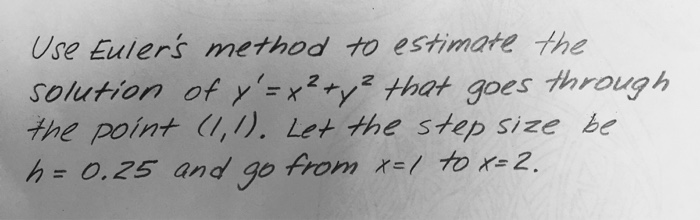 Use Euler's method to estimate the
solution of y' = x² + y² that goes through
the point (1,1). Let the step size be
h = 0.25 and go from x=1 to x=2.